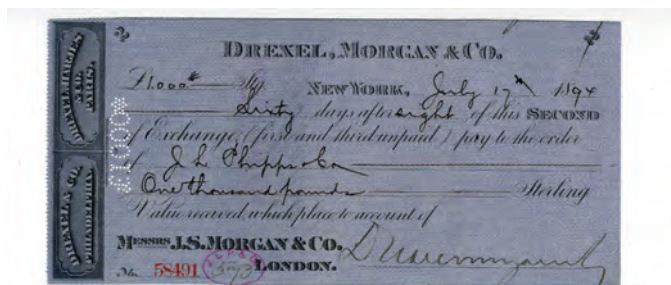 DREXEL, MORGAN & CO.
£1000 Stg NEW YORK, July 17th 1894
Sixty days after sight of this SECOND
of Exchange, (first and third unpaid) pay to the order
of J L Phipps & Co
One thousand pounds Sterling
Value received, which place to account of
MESSRS J.S. MORGAN & CO.
No. 58491 LONDON.
DREXEL, HARJES & CO. PARIS.
DREXEL & CO. PHILADELPHIA.
£1000